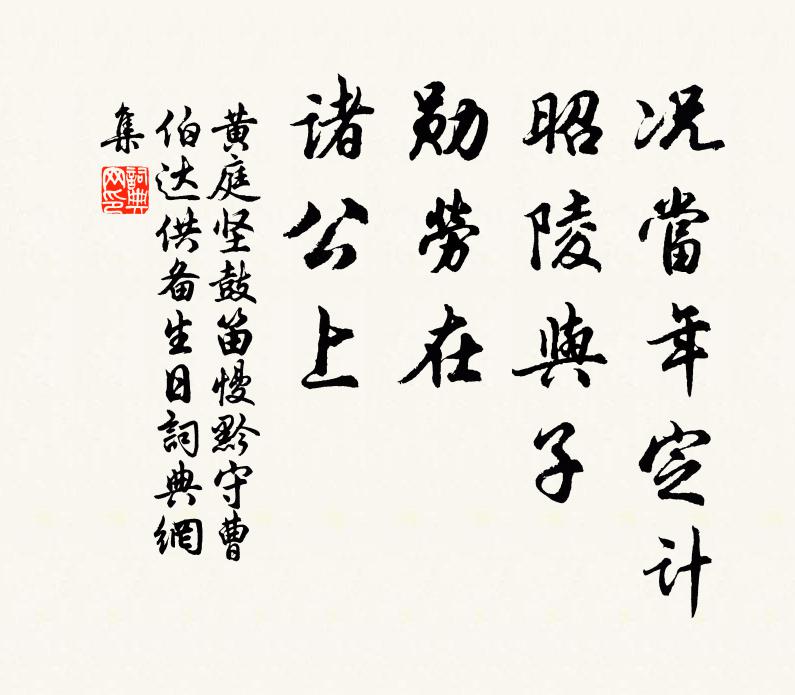 况當年定计
昭陵與子
勋勞在
諸公上
黄庭坚鼓笛慢黔守曹
伯达供备生日詞典網
集
詞典
网印